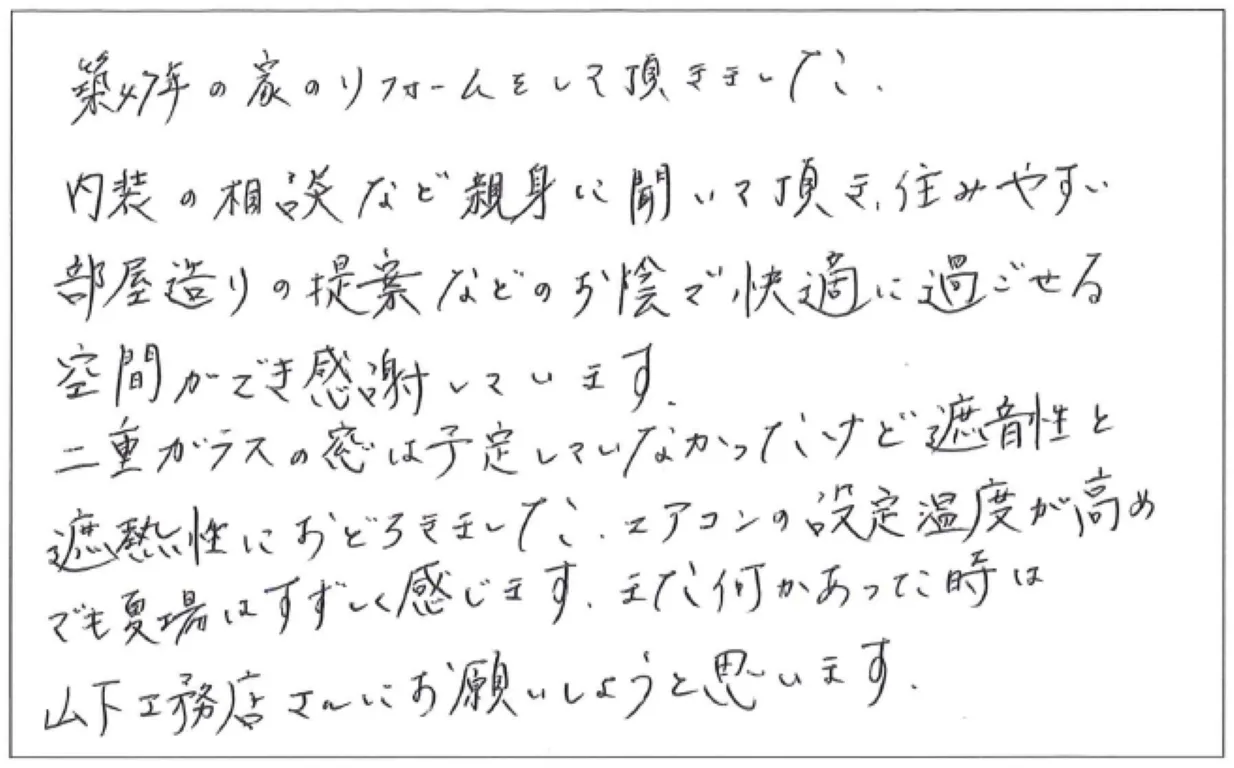 築47年の家のリフォームをして頂きました.
内装の相談など親身に聞いて頂き、住みやすい
部屋造りの提案などのお陰で、快適に過ごせる
空間ができ感謝しています.
二重ガラスの窓は予定していなかったけど遮音性と
遮熱性におどろきました. エアコンの設定温度が高め
でも夏場はすずしく感じます. また何かあった時は
山下工務店さんにお願いしようと思います.